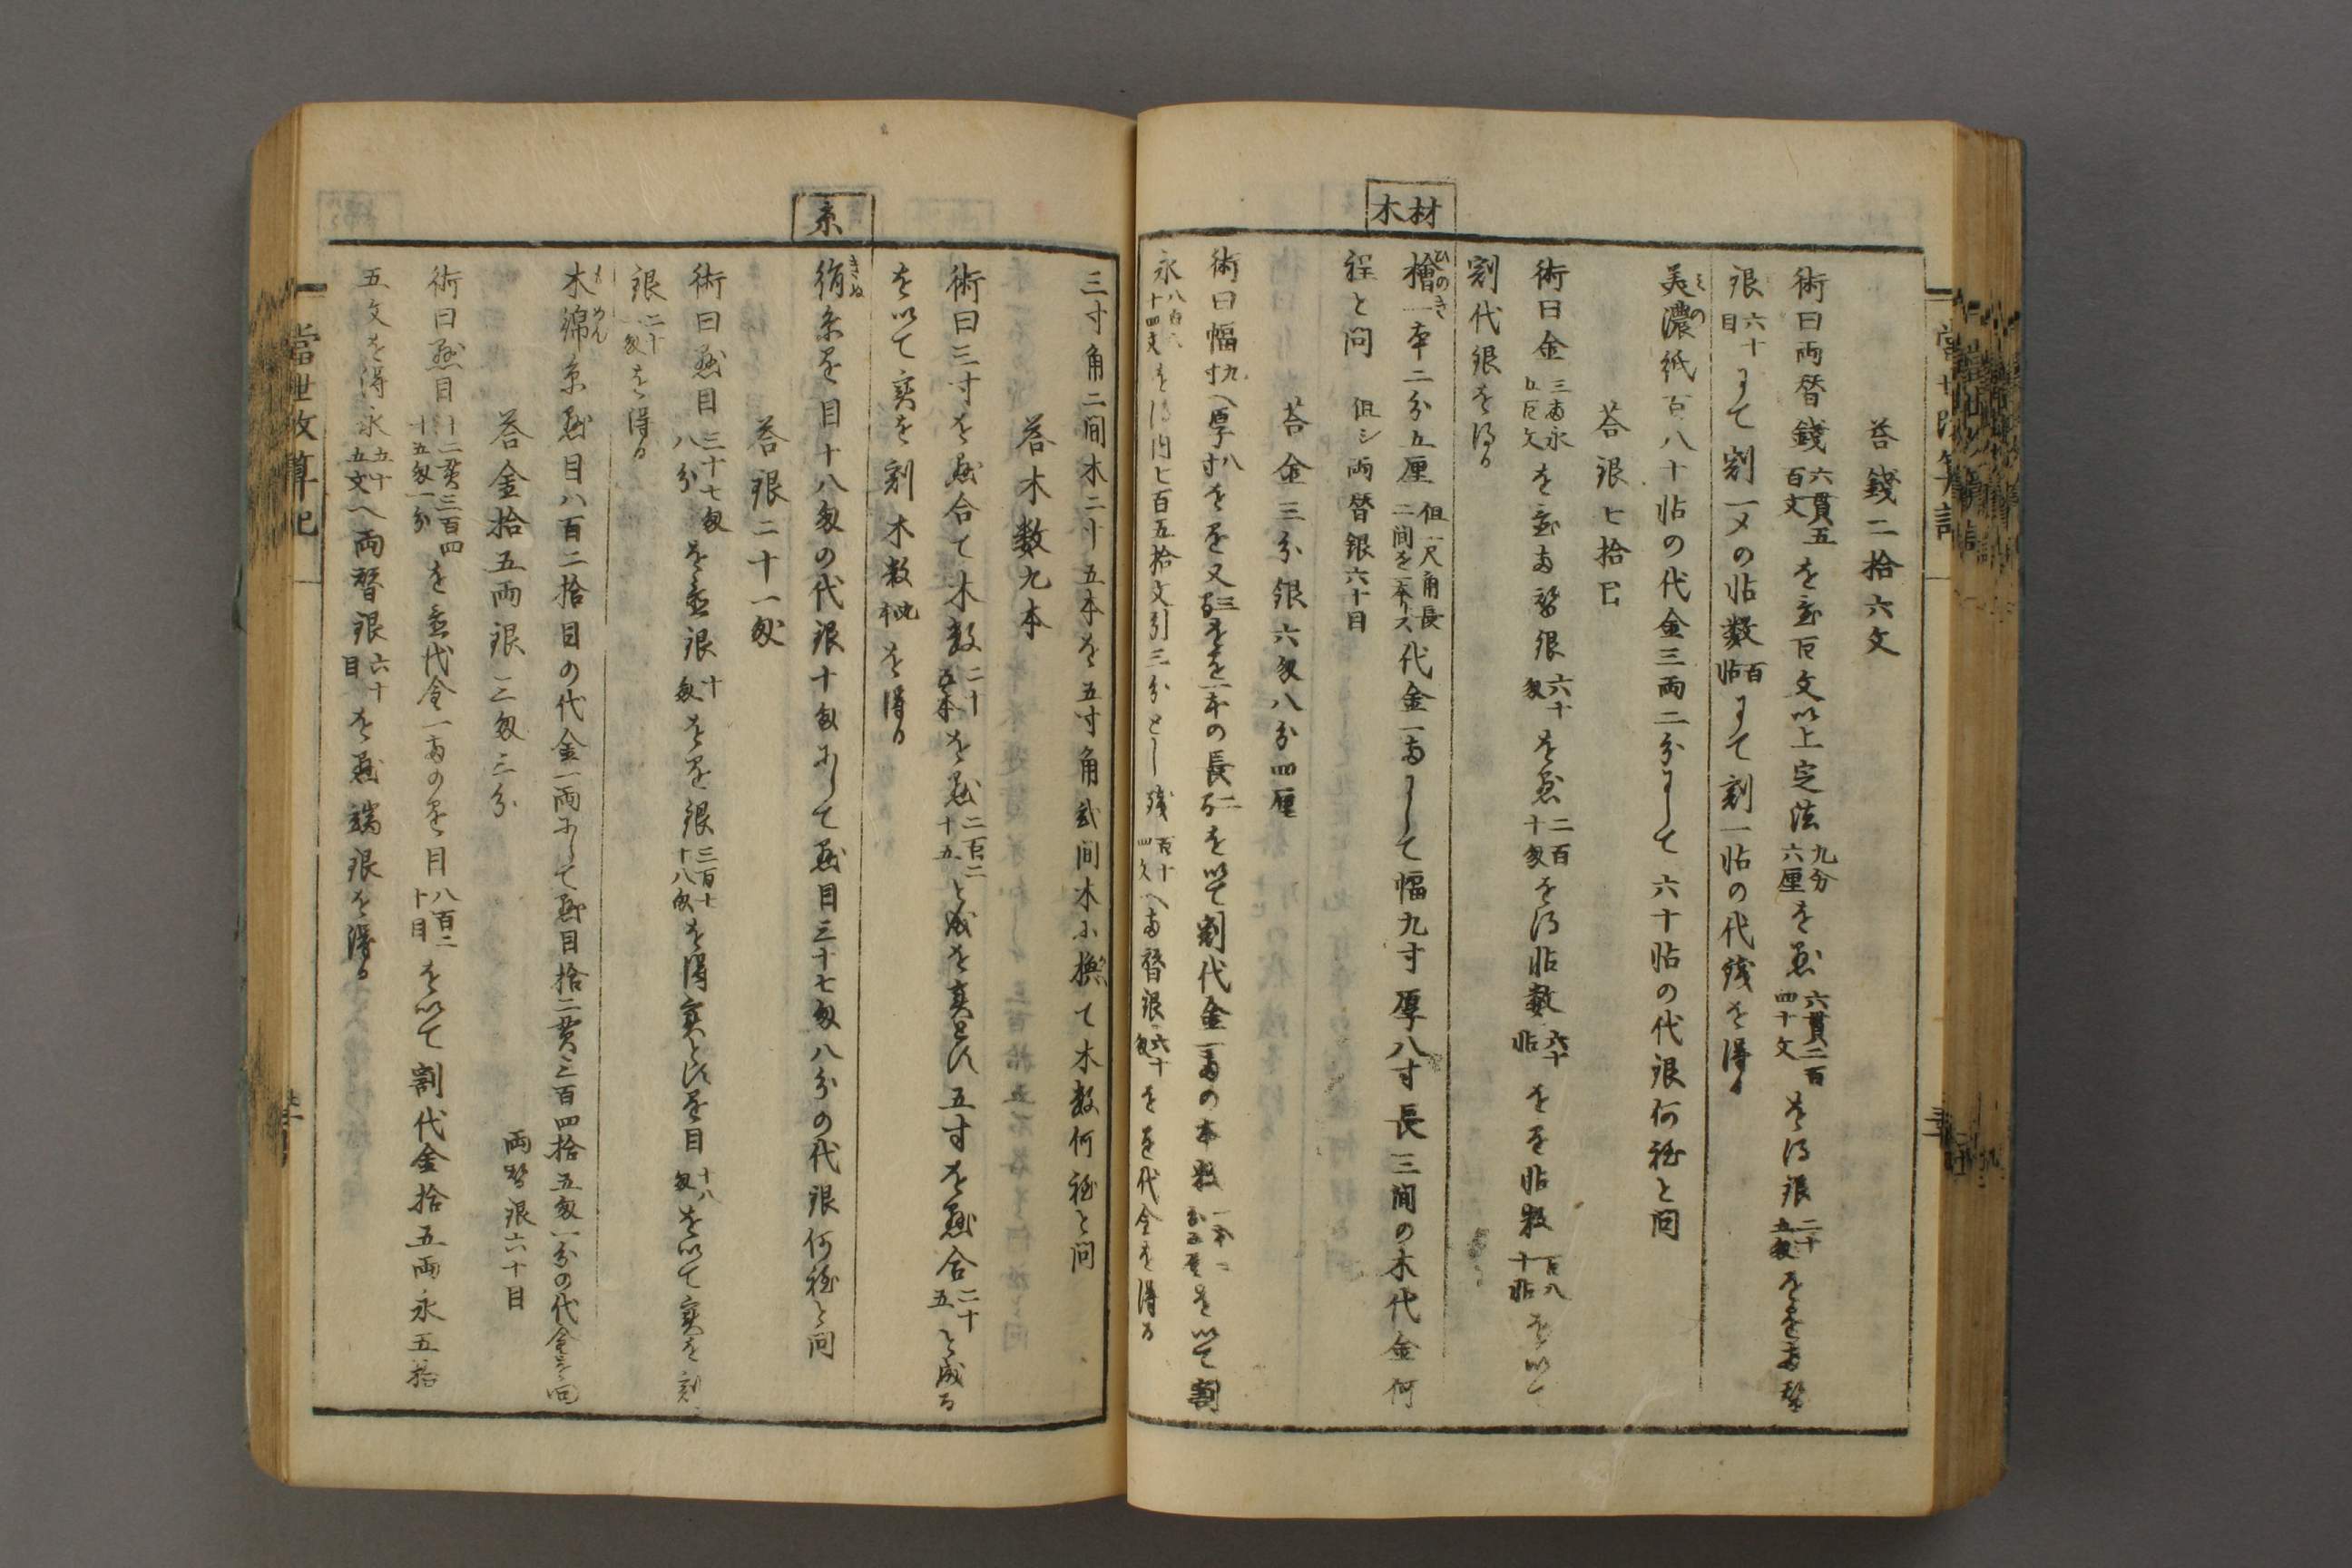 答錢二拾六文
術曰両替錢六貫五百文を置百文以上定法九分六厘を懸六貫二百四十文を得銀二十五匁を乗両替
銀六十目にて割一〆の帖数百帖にて割一帖の代錢を得る
美濃紙百八十帖の代金三両二分にして六十帖の代銀何程と問
答銀七拾目
術曰金三両永五百文を置両替銀六十匁を懸二百十匁を得帖数六十帖を乗帖数百八十帖を以て
割代銀を得る
材木
檜一本二分五厘但一尺角長二間を一本トス代金一両にして幅九寸厚八寸長三間の木代金何
程と問 但シ両替銀六十目
答金三分銀六匁八分四厘
術曰幅九寸へ厚八寸を乗又三間を乗一本の長二間を以て割代金一両の本数一本二分五厘を以て割
永八百六十四文を得内七百五拾文引三分とし残百十四文へ両替銀六十匁を乗代金を得る
三寸角二間木二十五本を五寸角弐間木に換て木数何程と問
答木数九本
術曰三寸を懸合て木数二十五本を懸二百二十五と成を実とし五寸を懸合二十五と成る
を以て実を割木数を得る
糸
絹糸を目十八匁の代銀十匁にして懸目三十七匁八分の代銀何程と問
答銀二十一匁
術曰懸目三十七匁八分を置銀十匁を乗銀三百七十八匁を得実とし乗目十八匁を以て実を割
銀二十一匁を得る
木綿糸懸目八百二拾目の代金一両にして懸目拾二貫三百四拾五匁一分の代金を問
答金拾五両銀三匁三分 両替銀六十目
術曰懸目十二貫三百四十五匁一分を置代金一両の乗目八百二十目を以て割代金拾五両永五拾
五文を得永五十五文へ両替銀六十目を懸端銀を得る
當世改算記